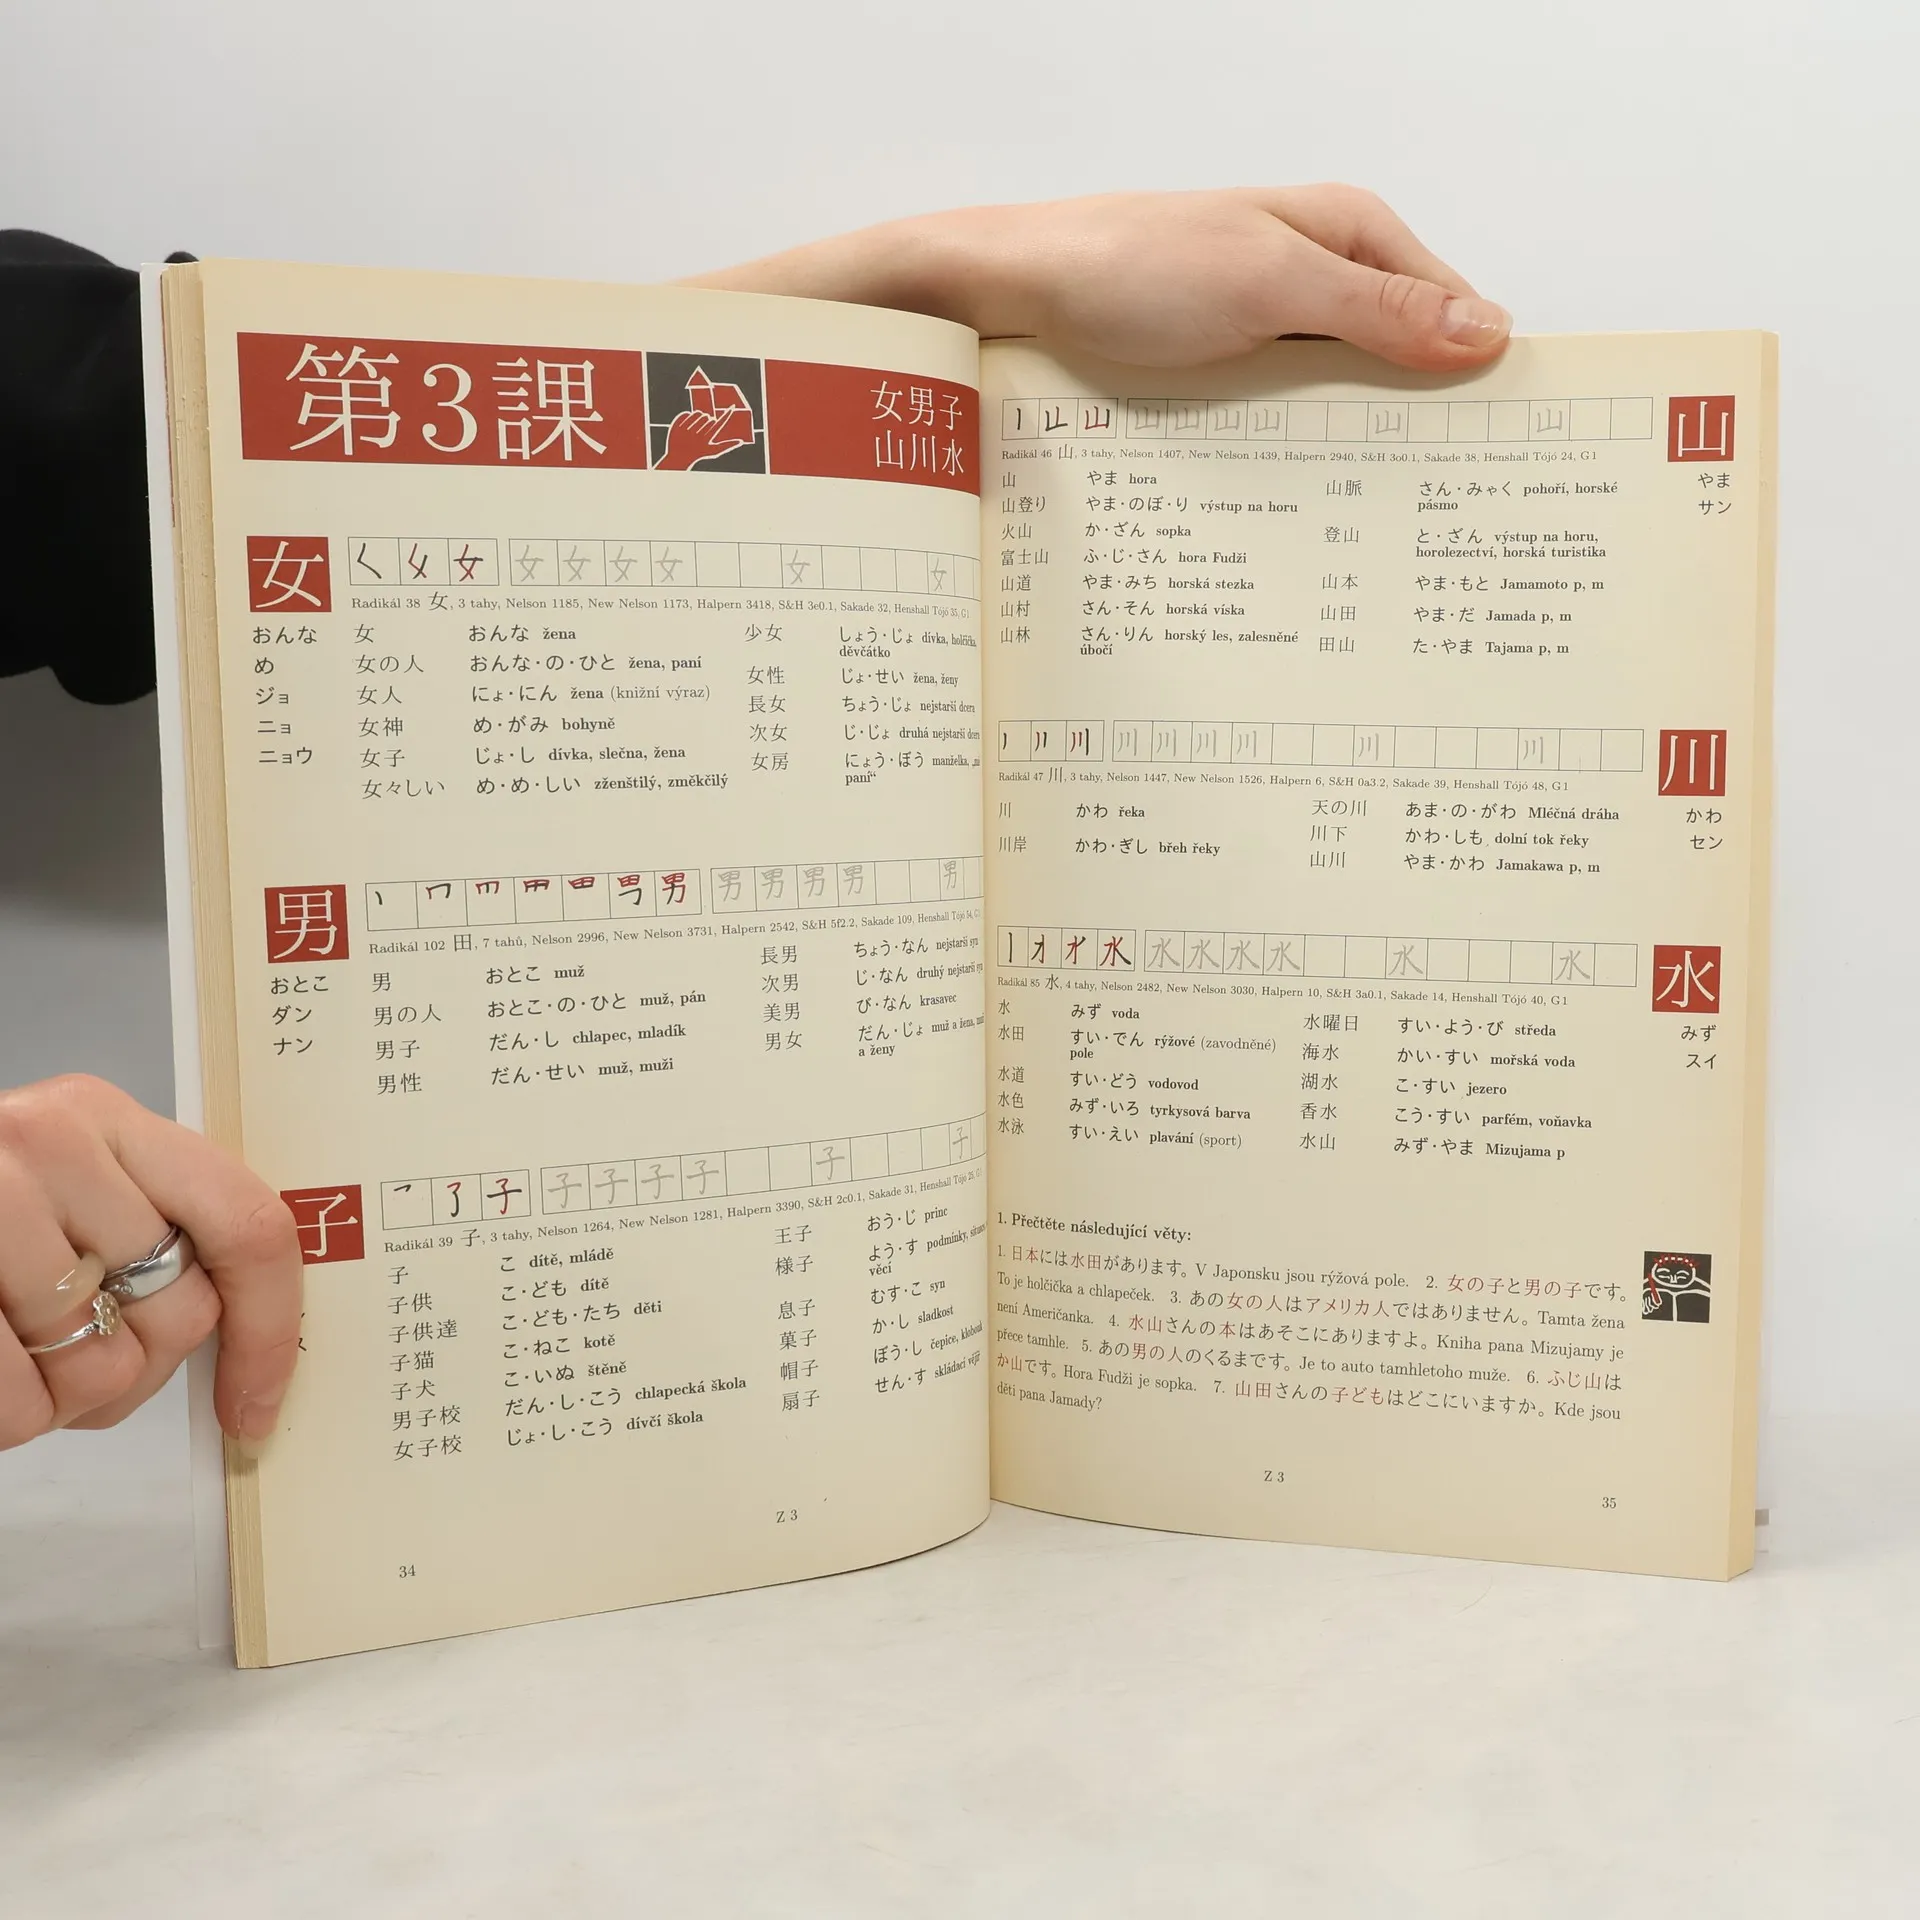 第3課
女男子
山川水
女
Radikál 38 女, 3 tahy, Nelson 1185, New Nelson 1173, Halpern 3418, S&H 3e0.1, Sakade 32, Henshall Tójó 35, G1
おんな
め
ジョ
ニョ
ニョウ
女 おんな žena
女の人 おんな・の・ひと žena, paní
女人 にょ・にん žena (knižní výraz)
女神 め・がみ bohyně
女子 じょ・し dívka, slečna, žena
女々しい め・め・しい zženštilý, změkčilý
少女 しょう・じょ dívka, holčička,
děvčátko
女性 じょ・せい žena, ženy
長女 ちょう・じょ nejstarší dcera
次女 じ・じょ druhá nejstarší dcera
女房 にょう・ぼう manželka,
paní“
男
Radikál 102 田, 7 tahů, Nelson 2996, New Nelson 3731, Halpern 2542, S&H 5f2.2, Sakade 109, Henshall Tójó 54,
おとこ
ダン
ナン
男 おとこ muž
男の人 おとこ・の・ひと muž, pán
男子 だん・し chlapec, mladík
男性 だん・せい muž, muži
長男 ちょう・なん nejstarší syn
次男 じ・なん druhý nejstarší syn
美男 び・なん krasavec
男女 だん・じょ muž a žena,
a ženy
子
Radikál 39 子, 3 tahy, Nelson 1264, New Nelson 1281, Halpern 3390, S&H 2c0.1, Sakade 31, Henshall Tójó 25, G1
子 こ dítě, mládě
子供 こ・ども dítě
子供達 こ・ども・たち děti
子猫 こ・ねこ kotě
子犬 こ・いぬ štěně
男子校 だん・し・こう chlapecká škola
女子校 じょ・し・こう dívčí škola
王子 おう・じ princ
様子 よう・す podmínky,
věcí
息子 むす・こ syn
菓子 か・し sladkost
帽子 ぼう・し čepice, klobouk
扇子 せん・す skládací vějíř
Z 3
34
山
Radikál 46 山, 3 tahy, Nelson 1407, New Nelson 1439, Halpern 2940, S&H 3o0.1, Sakade 38, Henshall Tójó 24, G1
やま
サン
山 やま hora
山登り やま・のぼ・り výstup na horu
火山 か・ざん sopka
富士山 ふ・じ・さん hora Fudži
山道 やま・みち horská stezka
山村 さん・そん horská víska
山林 さん・りん horský les, zalesněné
úbočí
山脈 さん・みゃく pohoří, horské
pásmo
登山 と・ざん výstup na horu,
horolezectví, horská turistika
山本 やま・もと Jamamoto p, m
山田 やま・だ Jamada p, m
田山 た・やま Tajama p, m
川
Radikál 47 川, 3 tahy, Nelson 1447, New Nelson 1526, Halpern 6, S&H 0a3.2, Sakade 39, Henshall Tójó 48, G1
かわ
セン
川 かわ řeka
川岸 かわ・ぎし břeh řeky
天の川 あま・の・がわ Mléčná dráha
川下 かわ・しも dolní tok řeky
山川 やま・かわ Jamakawa p, m
水
Radikál 85 水, 4 tahy, Nelson 2482, New Nelson 3030, Halpern 10, S&H 3a0.1, Sakade 14, Henshall Tójó 40, G1
みず
スイ
水 みず voda
水田 すい・でん rýžové (zavodněné)
pole
水道 すい・どう vodovod
水色 みず・いろ tyrkysová barva
水泳 すい・えい plavání (sport)
水曜日 すい・よう・び středa
海水 かい・すい mořská voda
湖水 こ・すい jezero
香水 こう・すい parfém, voňavka
水山 みず・やま Mizujama p
1. Přečtěte následující věty:
1. 日本には水田があります。V Japonsku jsou rýžová pole. 2. 女の子と男の子です。
To je holčička a chlapeček. 3. あの女の人はアメリカ人ではありません。Tamta žena
není Američanka. 4. 水山さんの本はあそこにありますよ。Kniha pana Mizujamy je
přece tamhle. 5. あの男の人のくるまです。Je to auto tamhletoho muže. 6. ふじ山は
か山です。Hora Fudži je sopka. 7. 山田さんの子どもはどこにいますか。Kde jsou
děti pana Jamady?
Z 3
35